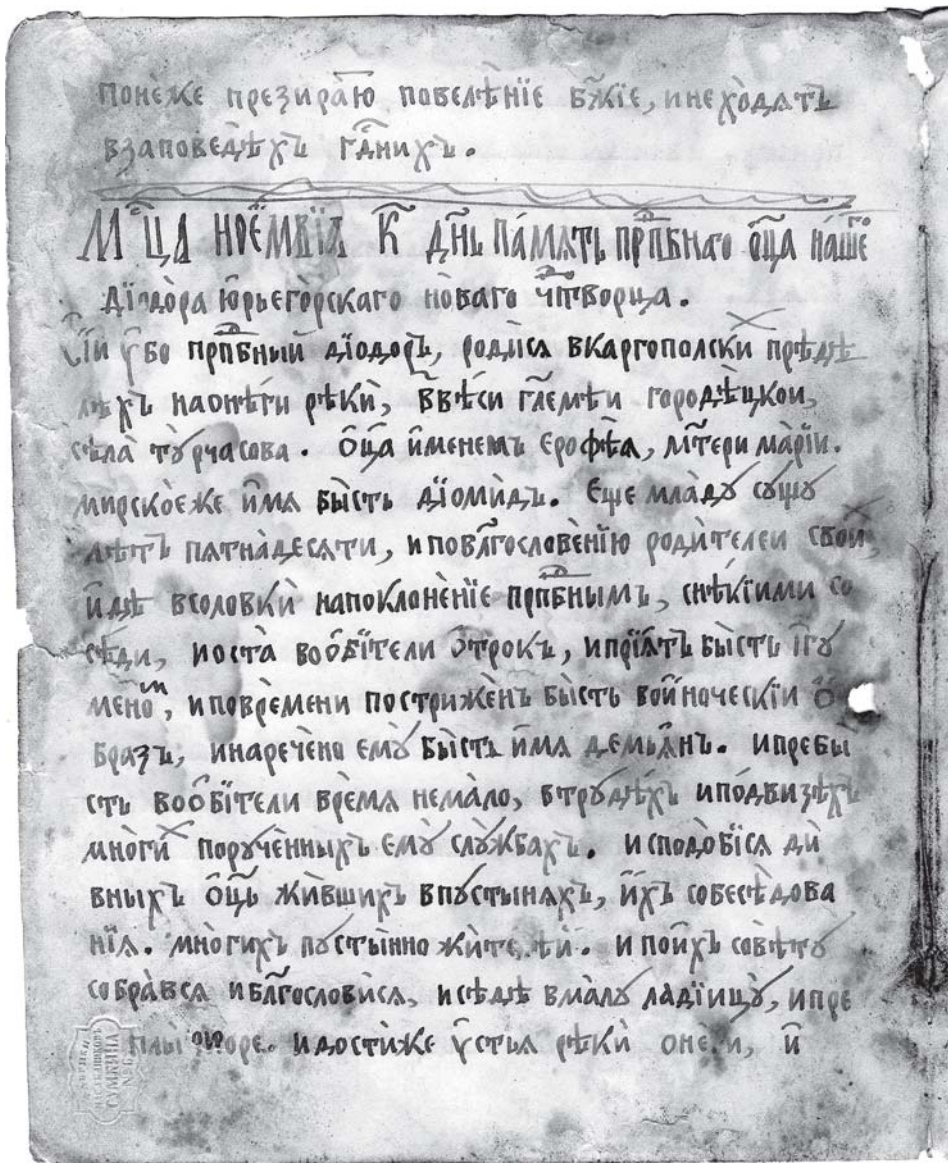 поне́же презира́ю повелѣ́нїе бж҃їе, инехо́дятъ
взаповѣдѣхъ гд҃нихъ.
Мц҃а ноѐмвїа к҃ дн҃ь па́мять прпⷣбнаго ѻц҃а на́шеⷢ҇ѡ
Дїодо́ра ю́рьегорскаго но́ваго чюⷣтворца.
Сїи ᲂу҆бо прпⷣбный дїодоръ, роди́ся вкаргополски предѣ
лѣхъ наонѣги рѣкѝ, ввѣси гл҃емѣи городѣцкои,
сѣла тꙋрчасова. ѻц҃а и҆́менемъ єрофѣа, мт҃ери марїи.
мирскоеже и҆́мя бы́сть дїоми́дъ. Еще мла́дꙋ сꙋ́щꙋ
лѣтъ пятна́десяти, ипоблг҃ослове́нїю роди́телеи свои́х,
и҆дѐ всоловки́ напоклоне́нїе прпⷣбнымъ, снѣ́кїими со
сѣ́ди, иоста воѻби́тели ѻ҆́трокъ, ипрїя́тъ бы́сть ігꙋ
меноⷨ, иповре́мени постриже́нъ бы́сть вои҆́ноческїи ѻ҆́
бразъ, инарече́но емꙋ̀ бы́сть и҆́мя демья́нъ. ипребы̀
сть воѻби́тели вре́мя нема́ло, втрꙋдѣ́хъ иподвизѣ́хъ
мно́гиⷯ порꙋче́нныхъ ємꙋ̀ слꙋ́жбахъ. исподо́бїся ди́
вныхъ ѻц҃ъ жи́вшихъ впꙋсты́няхъ, и҆́хъ собесѣ́дова
нїя. мно́гихъ пꙋсты́нножи́телѣи. ипои҆́хъ совѣ́тꙋ
собра́вся иблг҃ослови́ся, исѣ́де вма́лꙋ ладїицꙋ, ипре
море. идости́же ᲂу҆́стья рѣки̑ онеги, и҆